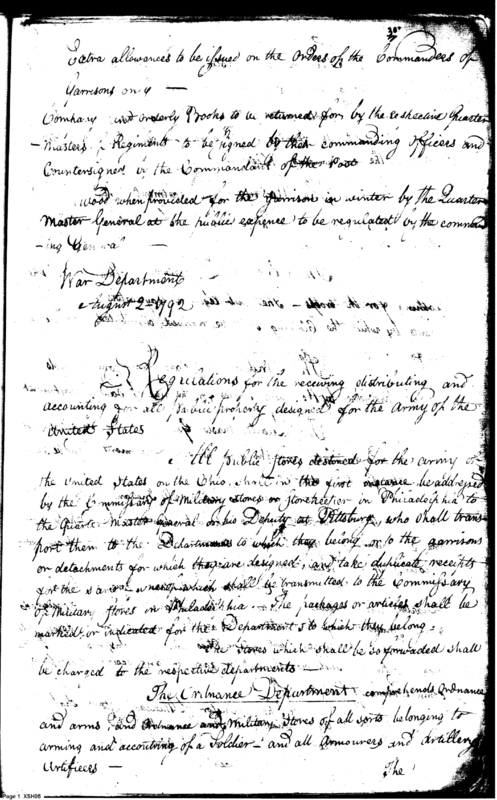 Extra allowances to be issued on the orders of the Commanders of
Garrisons only —
Company and orderly Books to be returned for by the respective Quarter
Masters, Regiments to be signed by their commanding Officers and
Countersigned by the Commandant of the Post
Wood when provided for the Garrison in winter by the Quarter
Master General at the public expence to be regulated by the command
-ing General
War Department
August 2nd 1792
Regulations for the receiving distributing and
accounting for all public property designed for the Army of the
United States
All public stores destined for the army of
the United States on the Ohio, shall in the first instance be addressed
by the Commissary of Military stores or storekeeper in Philadelphia to
the Quarter Master General or his Deputy at Pittsburg, who shall trans
port them to the Departments to which they belong or to the garrisons
or detachments for which they are designed, and take duplicate receipts
for the same which shall be transmitted to the Commissary
of Military stores in Philadelphia. The packages or articles shall be
marked or indicated for the Departments to which they belong.
The stores which shall be so forwaded shall
be charged to the respective departments —
The Ordnance Department comprehends Ordnance
and arms, and Ordnance and Military stores of all sorts belonging to
arming and accoutring of a Soldier — and all Armourers and Artillery
Artificers —
The
Page 1 XSH06